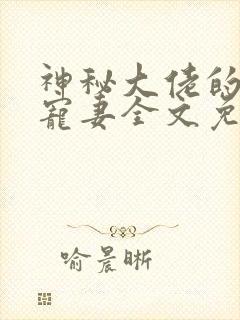 神秘大佬的
寵妻全文免
喻晨晰